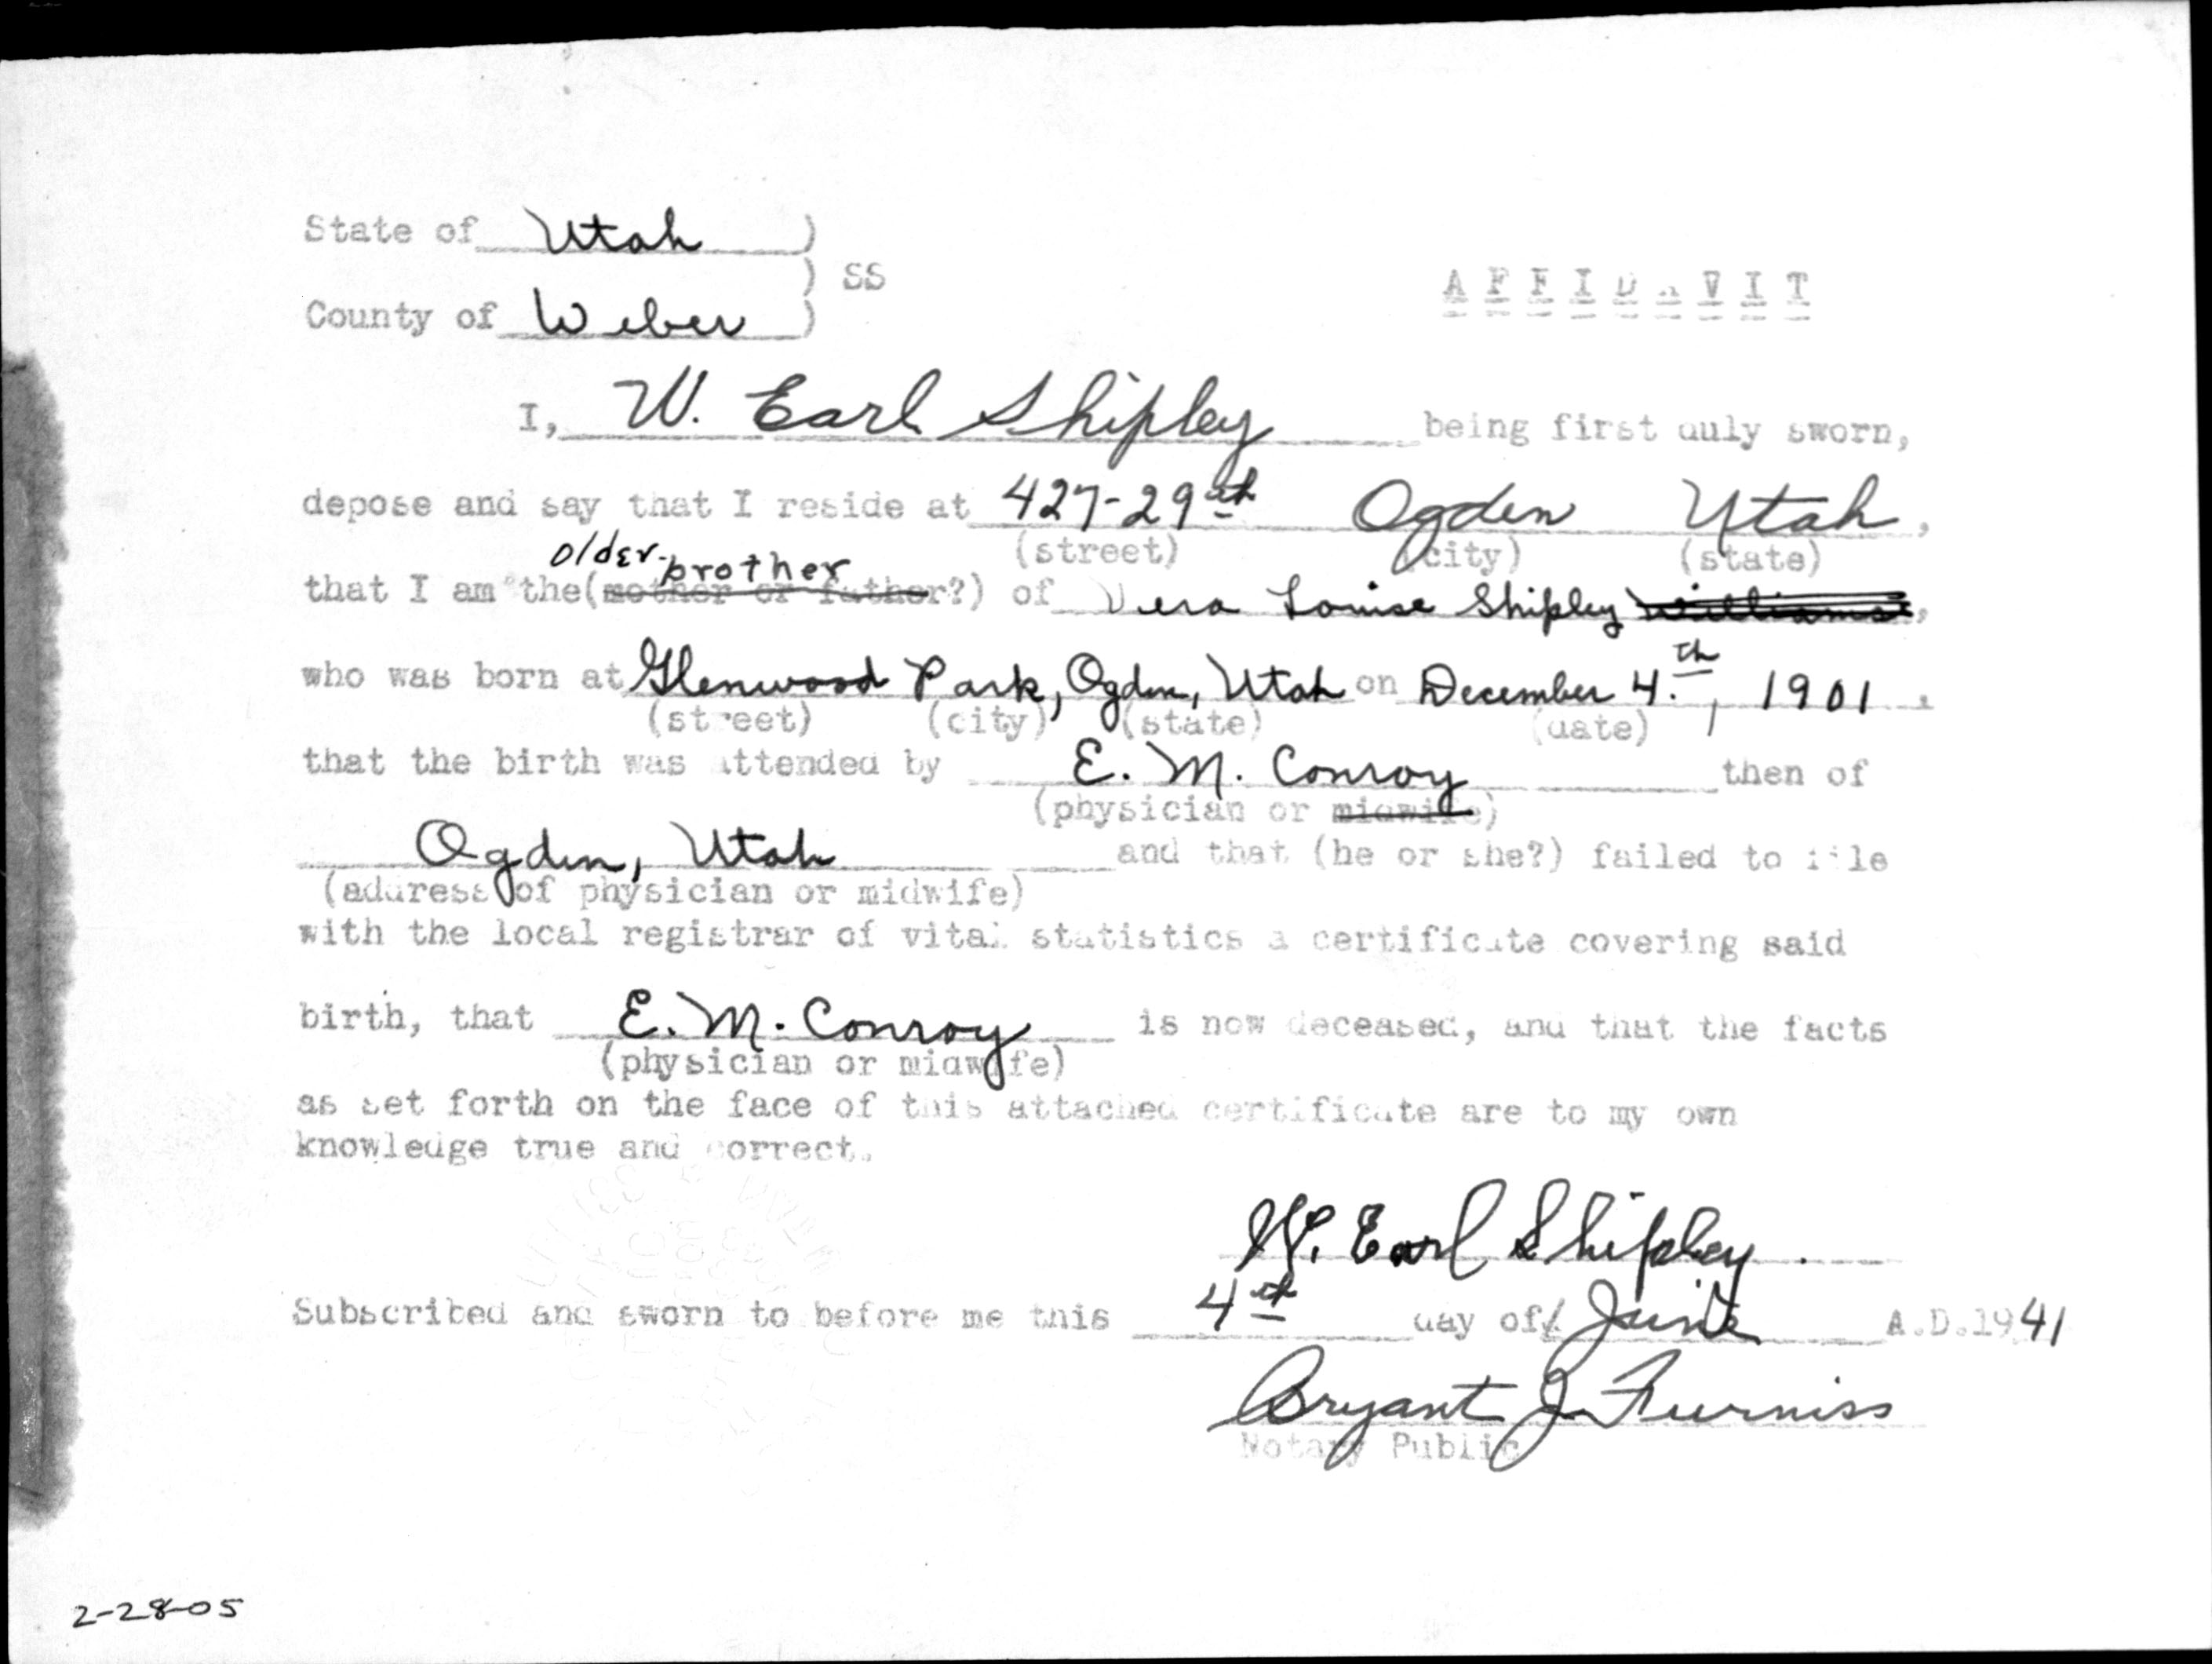 State of Utah )
) SS
County of Weber )
AFFIDAVIT
I, W. Earl Shipley being first duly sworn,
depose and say that I reside at 427-29th Ogden Utah,
(street) (city) (state)
older brother
that I am the (mother or father?) of Vera Louise Shipley Williams,
who was born at Glenwood Park, Ogden, Utah on December 4.th, 1901.
(street) (city) (state) (date)
that the birth was attended by E. M. Conroy then of
(physician or midwife)
Ogden, Utah and that (he or she?) failed to file
(address of physician or midwife)
with the local registrar of vital statistics a certificate covering said
birth, that E. M. Conroy is now deceased, and that the facts
(physician or midwife)
as set forth on the face of this attached certificate are to my own
knowledge true and correct.
W. Earl Shipley.
Subscribed and sworn to before me this 4th day of June A.D.1941
Bryant J. Furniss
Notary Public
2-28-05